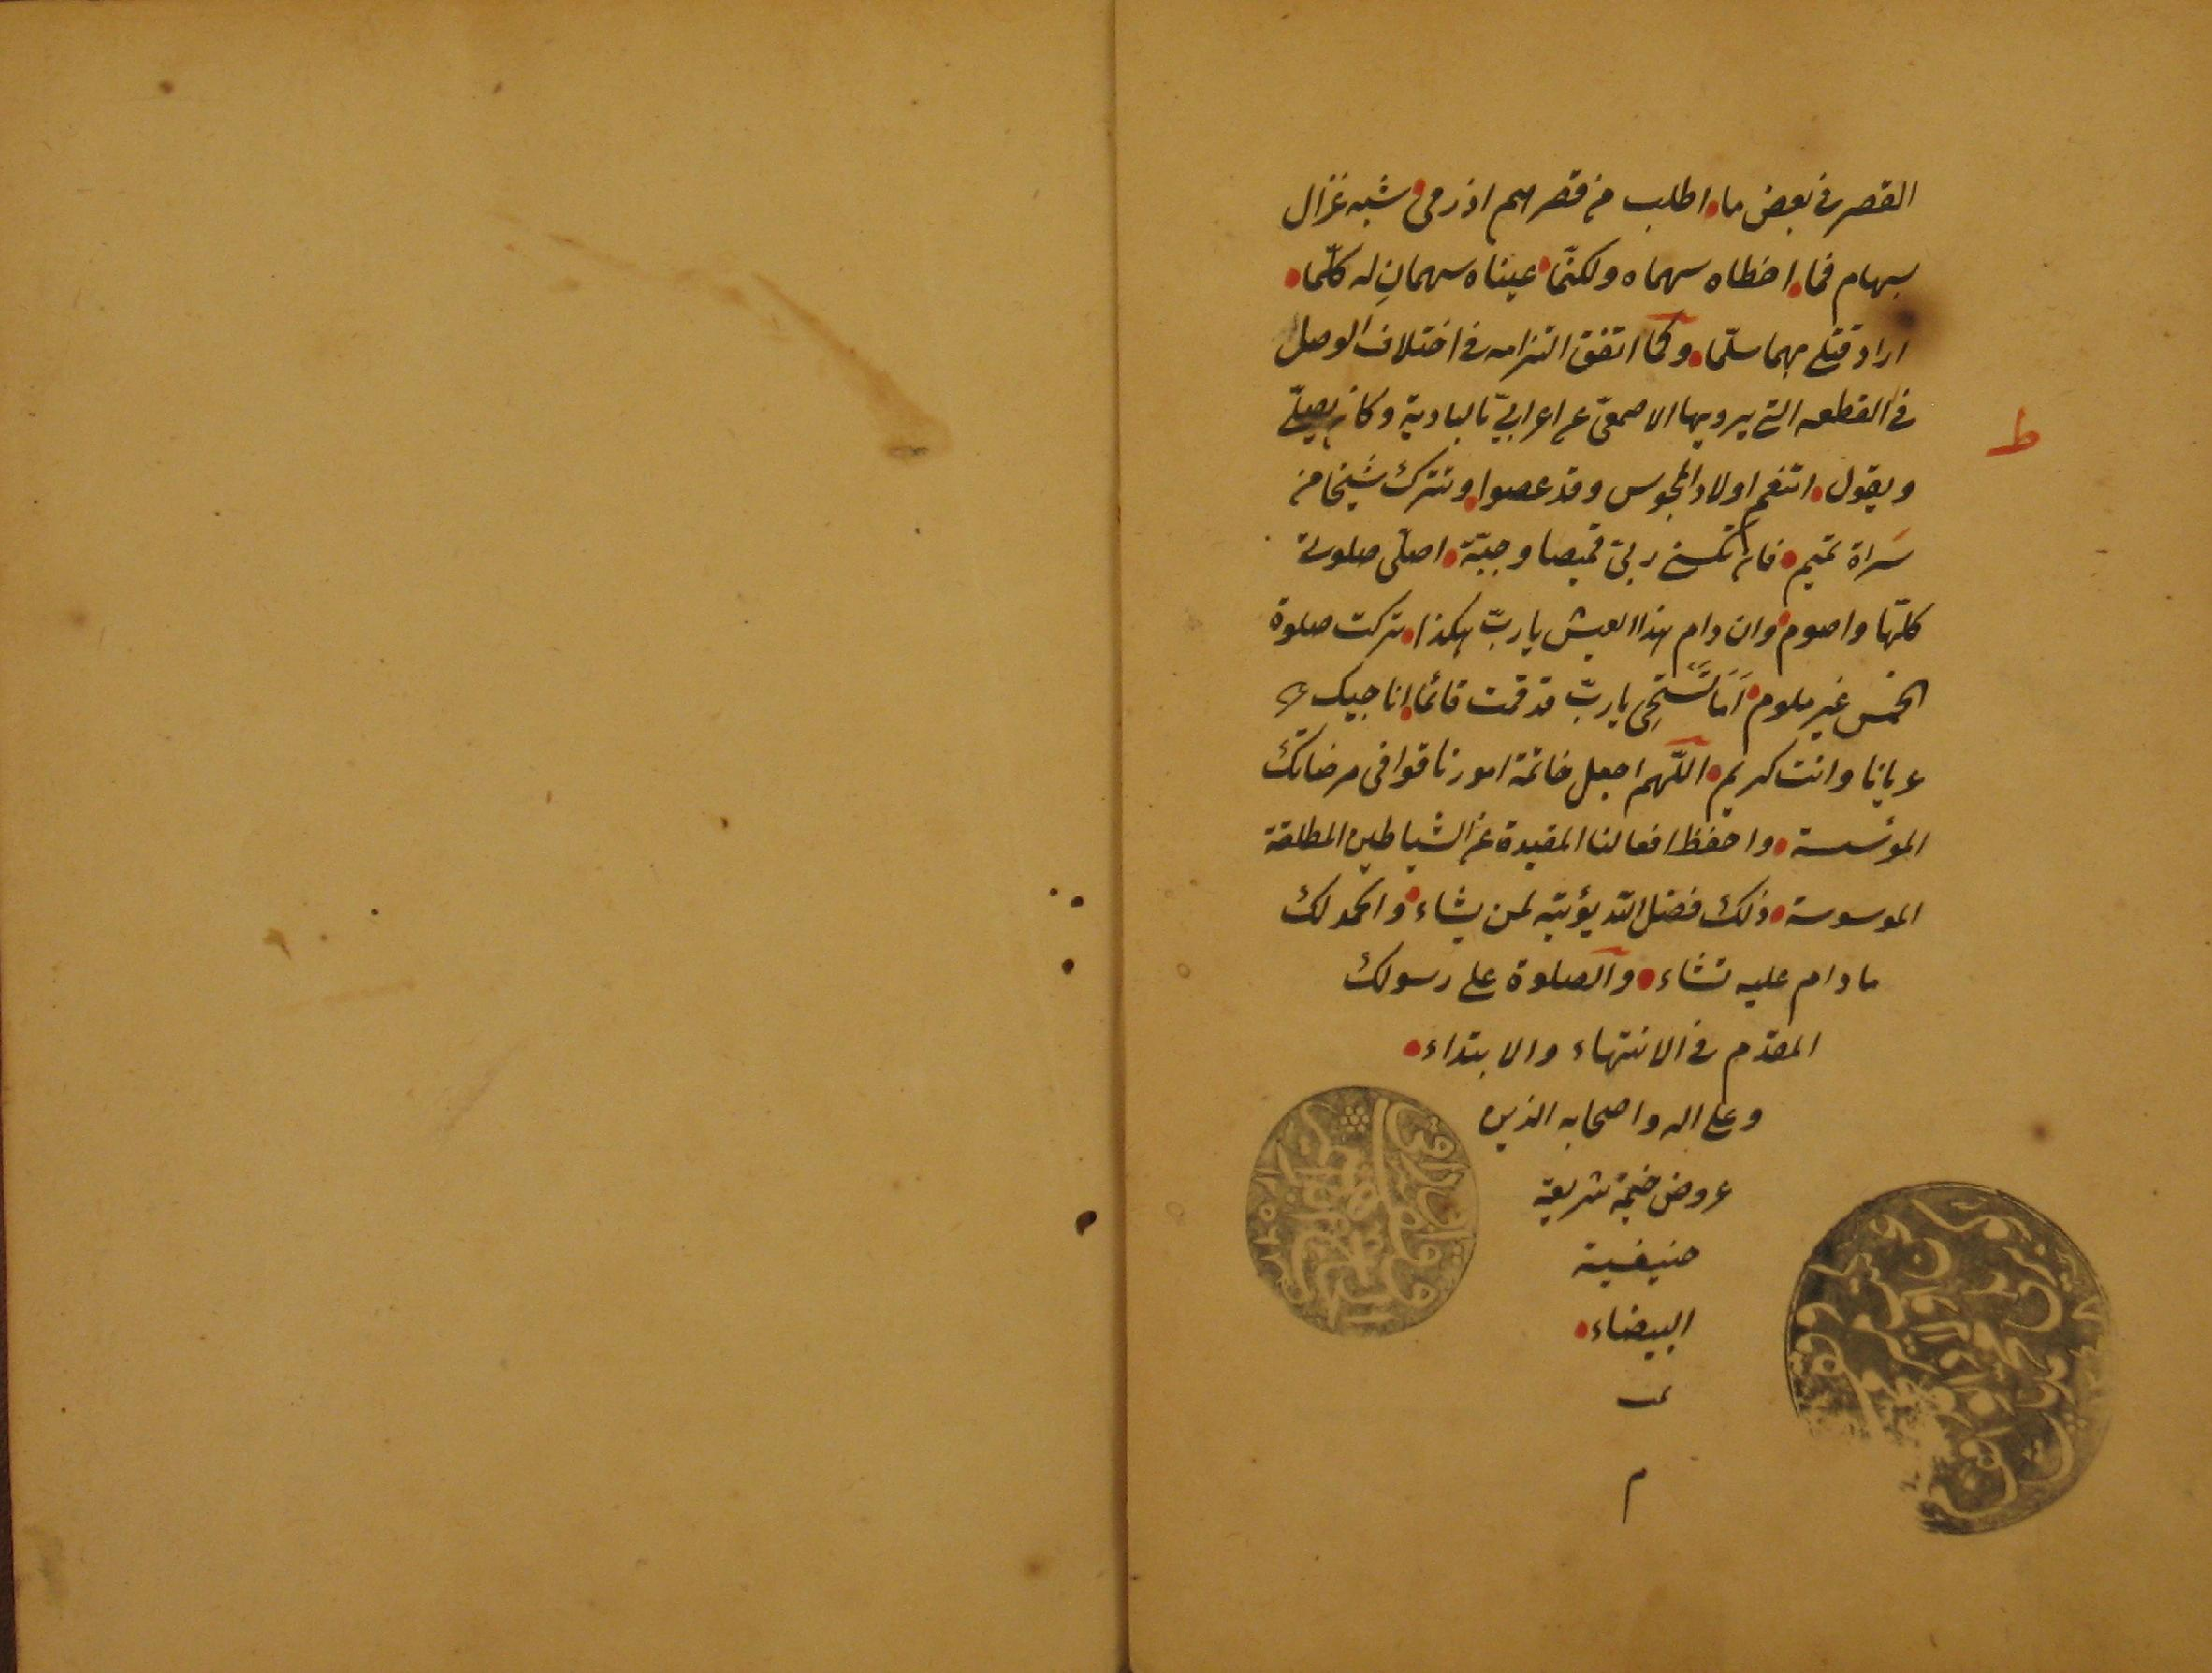 القصر في بعض ما اطلب من قصرهم اذ رمى شبه غزال
بسهام فما اخطاه سهماه ولكنّما عيناه سهمانِ له كلّما
اراد قتلى بهما سلّما وكما اتفق التزامه في اختلاف الوصل
في القطعه التى يرويها الاصمعىّ عن اعرابىّ بالبادية وكان يصلّى
ويقول اتنعم اولاد المجوس وقد عصوا وتترك شيخا من
سَراة تميم فان تكسنى ربى قميصا وجبّة اصلّى صلوتى
كلّها واصوم وان دام هذا العيش يا ربّ هكذا تركت صلوة
الخمس غير ملوم اَمَا تَستَحِى يا ربّ قد قمت قائما اناجيك
عريانا وانت كريم اللّهم اجعل خاتمة امورنا قوافى مرضاتك
المؤسسة واحفظ افعالنا المقيدة عن الشياطين المطلقة
الموسوسة ذلك فضل الله يؤتيه لمن يشاء والحمد لك
ما دام عليه تشاء والصلوة على رسولك
المقدّم في الانتهاء والابتداء
وعلى اله واصحابه الذين
عروض خيمة شريعة
حنيفية
البيضاء
م
ط